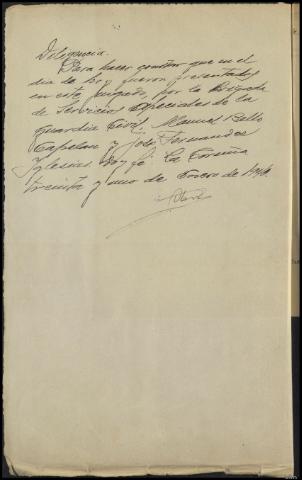 Diligencia.
Para hacer constar que en el
dia de hoy fueron presentados
en este Juzgado, por la Brigada
de Servicios Especiales de la
Guardia Civil, Manuel Bello
Capelan y José Fernandez
Iglesias. Doy fé. La Coruña
treinta y uno de Enero de